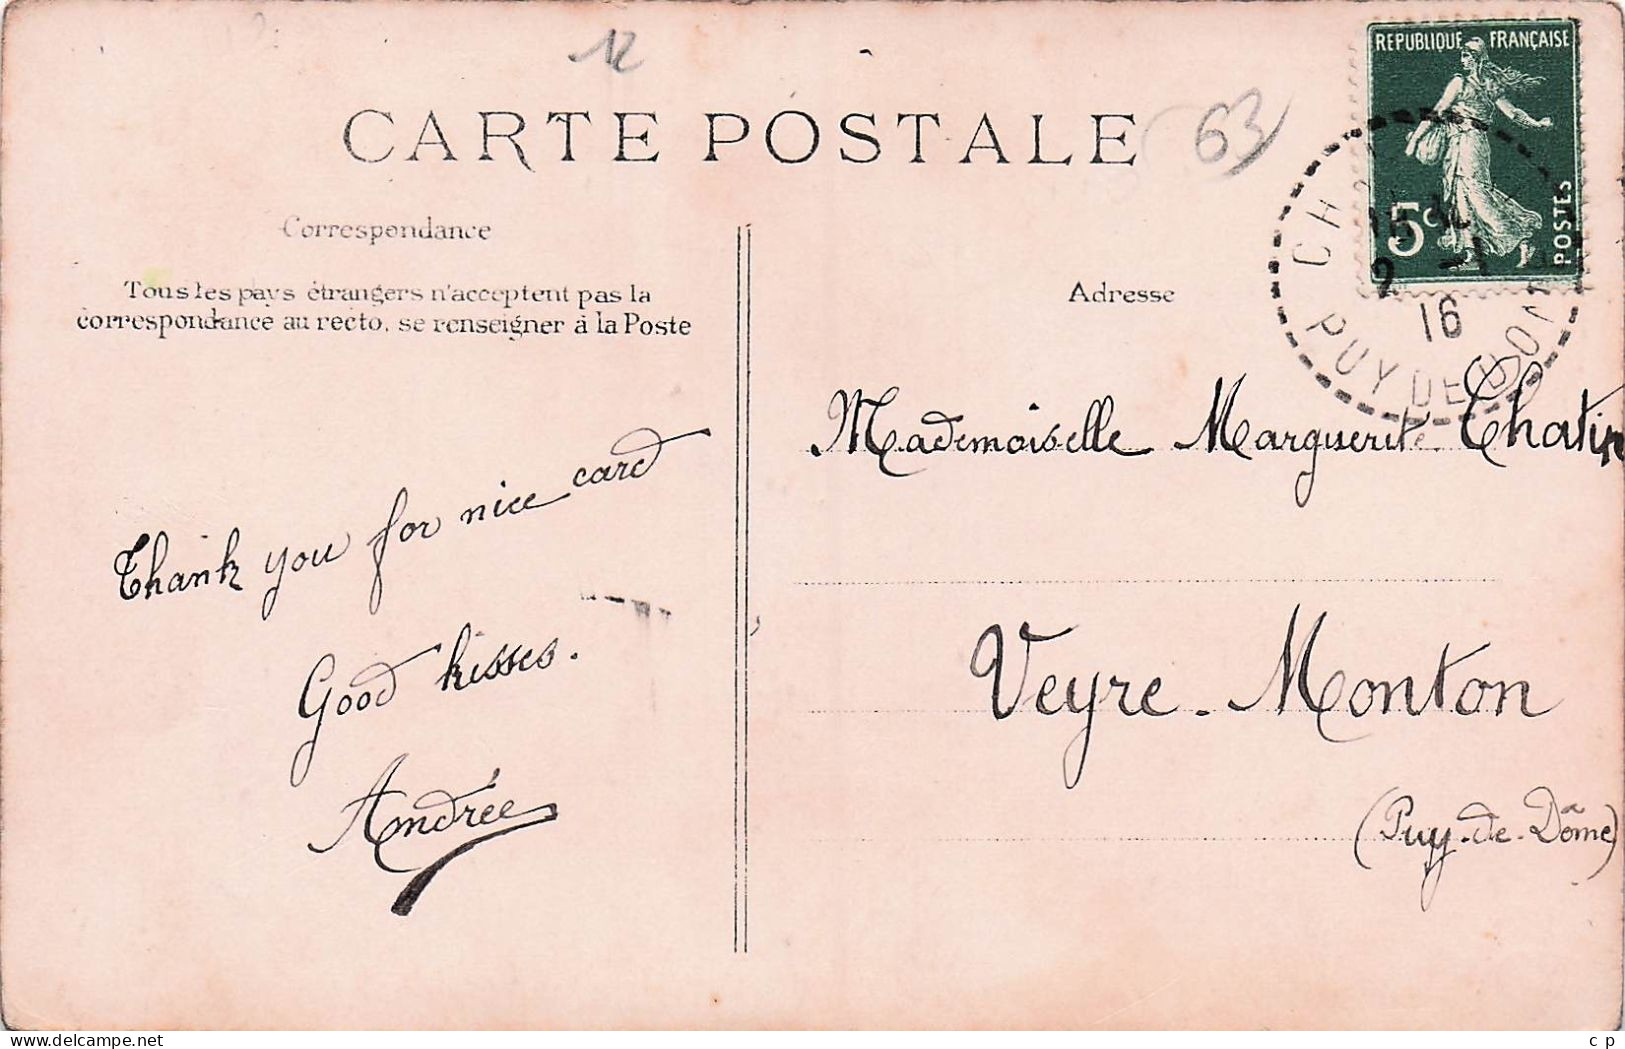 12
CARTE POSTALE
63
REPUBLIQUE FRANÇAISE
5c
POSTES
2 -1
16
PUY DE DOME
Correspondance
Tous les pays étrangers n'acceptent pas la
correspondance au recto, se renseigner à la Poste
Adresse
Thank you for nice card
Good kisses.
Andrée
Mademoiselle Marguerite Chatin
Veyre-Monton
(Puy-de-Dôme)
delcampe.net
c p